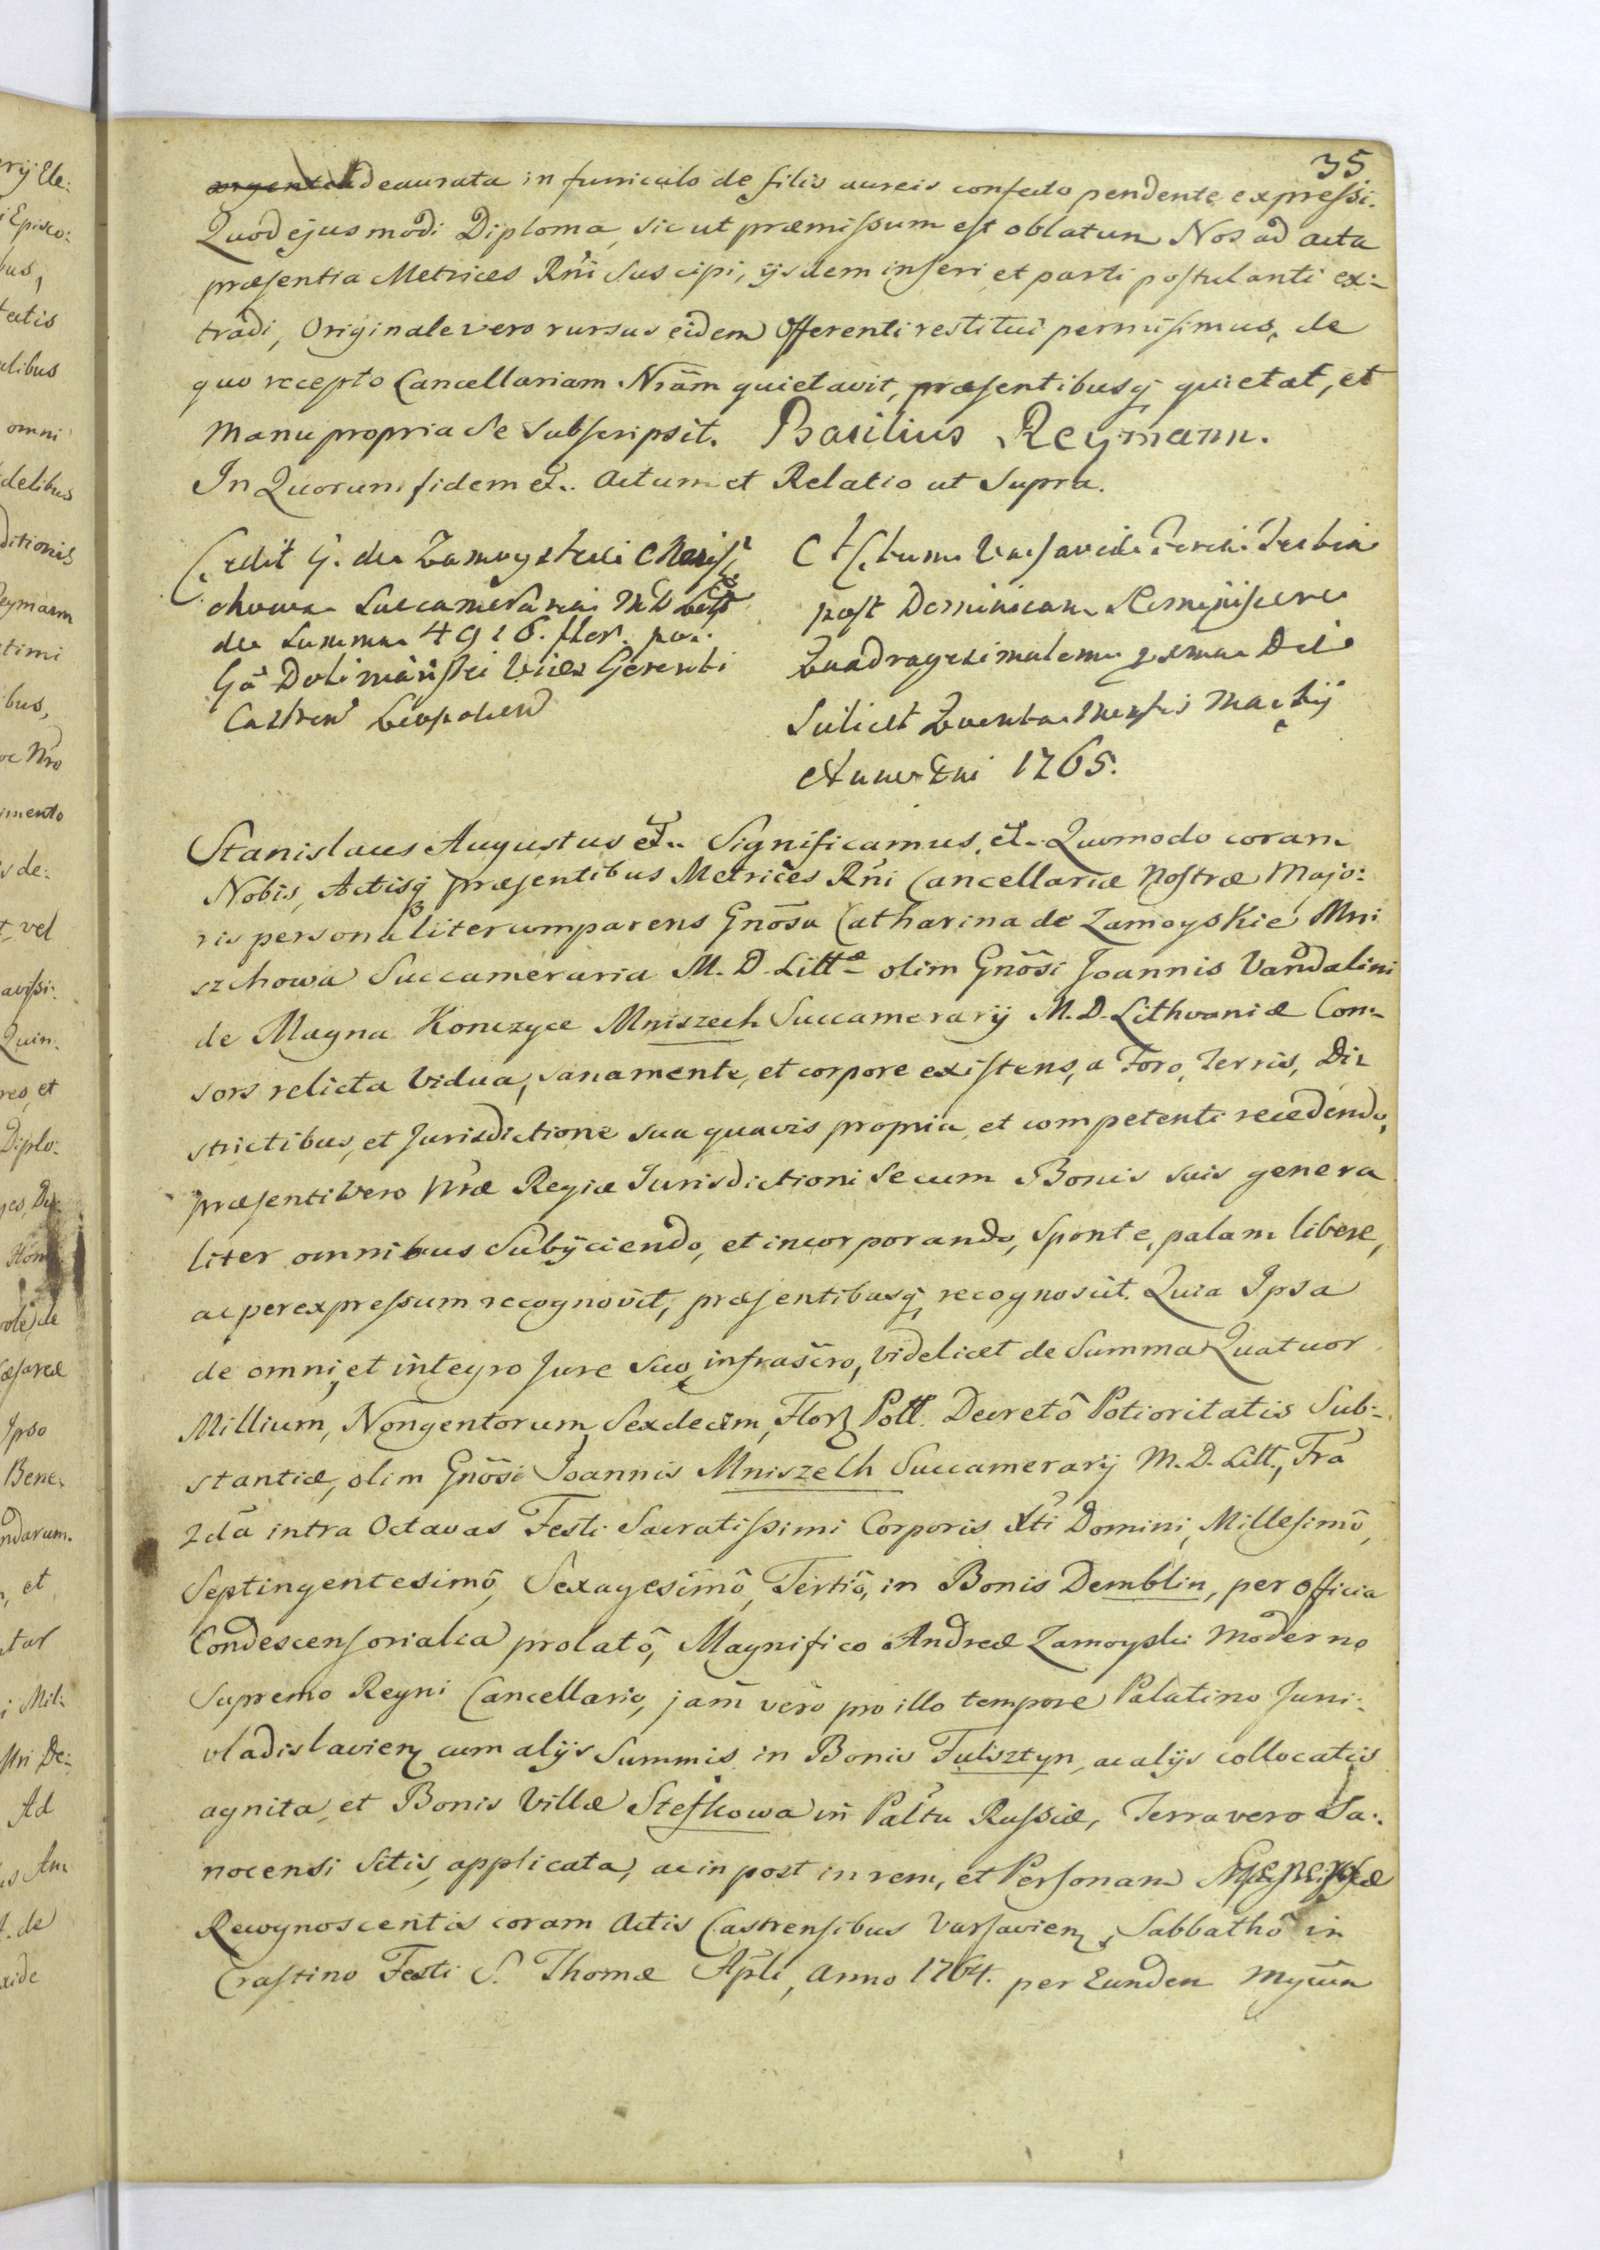 35
argentea deaurata in funiculo de filis aureis confecto pendente expressi.
Quod ejusmodi Diploma, sic ut præmissum est oblatum Nos ad acta
præsentia Metrices Rñi suscipi, ijsdem inseri et parti postulanti ex:
tradi, Originale vero rursus eidem Offerenti restitui permisimus, de
quo recepto Cancellariam Nrãm quietavit, præsentibusq quietat, et
Manu propria se subscripsit. Basilius Reymann.
In Quorum fidem et. Actum et Relatio ut Supra.
Cedit G. de Zamoyskie Mnisz
chowa Succameraria M D Litt
de summa 4916. flor. pol.
Gõ Dolimański Vices Gerenti
Castren Leopolien
Actum Varsaviæ Feria Tertia
post Dominicam Reminiscere
Quadragesimalem proxima Die
Scilicet Quinta Mensis Martij
Anno Dni 1765.
Stanislaus Augustus et. Significamus, et. Quomodo coram
Nobis, Actisq præsentibus Metrices Rñi Cancellariæ Nostræ Majo:
ris personaliter comparens Gnõsa Catharina de Zamoyskie Mni
szchowa Succameraria M. D. Littæ olim Gnõsi Joannis Vandalini
de Magna Konczyce Mniszech Succamerarij M. D. Lithvaniæ Con:
sors relicta Vidua, sana mente, et corpore existens, a Foro, Terris, Di
strictibus, et Jurisdictione sua quavis propria et competenti recedendo,
præsenti vero Nræ Regiæ Jurisdictioni se cum Bonis suis genera
liter omnibus Subijciendo, et incorporando, Sponte, palam libere,
ac per expressum recognovit, præsentibusq recognoscit. Quia Ipsa
de omni, et integro Jure Suo infrascro, videlicet de Summa Quatuor
Millium, Nongentorum Sexdecim, Flor Poll. Decretô Potioritatis Sub:
stantiæ, olim Gnõsi Joannis Mniszech Succamerarij M. D. Litt, Fra
2dã intra Octavas Festi Sacratissimi Corporis Xti Domini, Millesimô,
Septingentesimô, Sexagesimô, Tertiô, in Bonis Demblin, per Officia
Condescensorialia prolatô, Magnifico Andreæ Zamoyski moderno
Supremo Regni Cancellario, jam vero pro illo tempore Palatino Juni:
vladislavien cum alijs Summis in Bonis Fulsztyn, ac alijs collocatis
agnita, et Bonis Villæ Stefkowa in Palttu Russiæ, Terra vero Sa:
nocensi sitis, applicata, ac in post in rem, et Personam
Recognoscentis coram Actis Castrensibus Varsavien, Sabbathô in
Crastino Festi S. Thomæ Apli, Anno 1764. per Eundem Mgcum